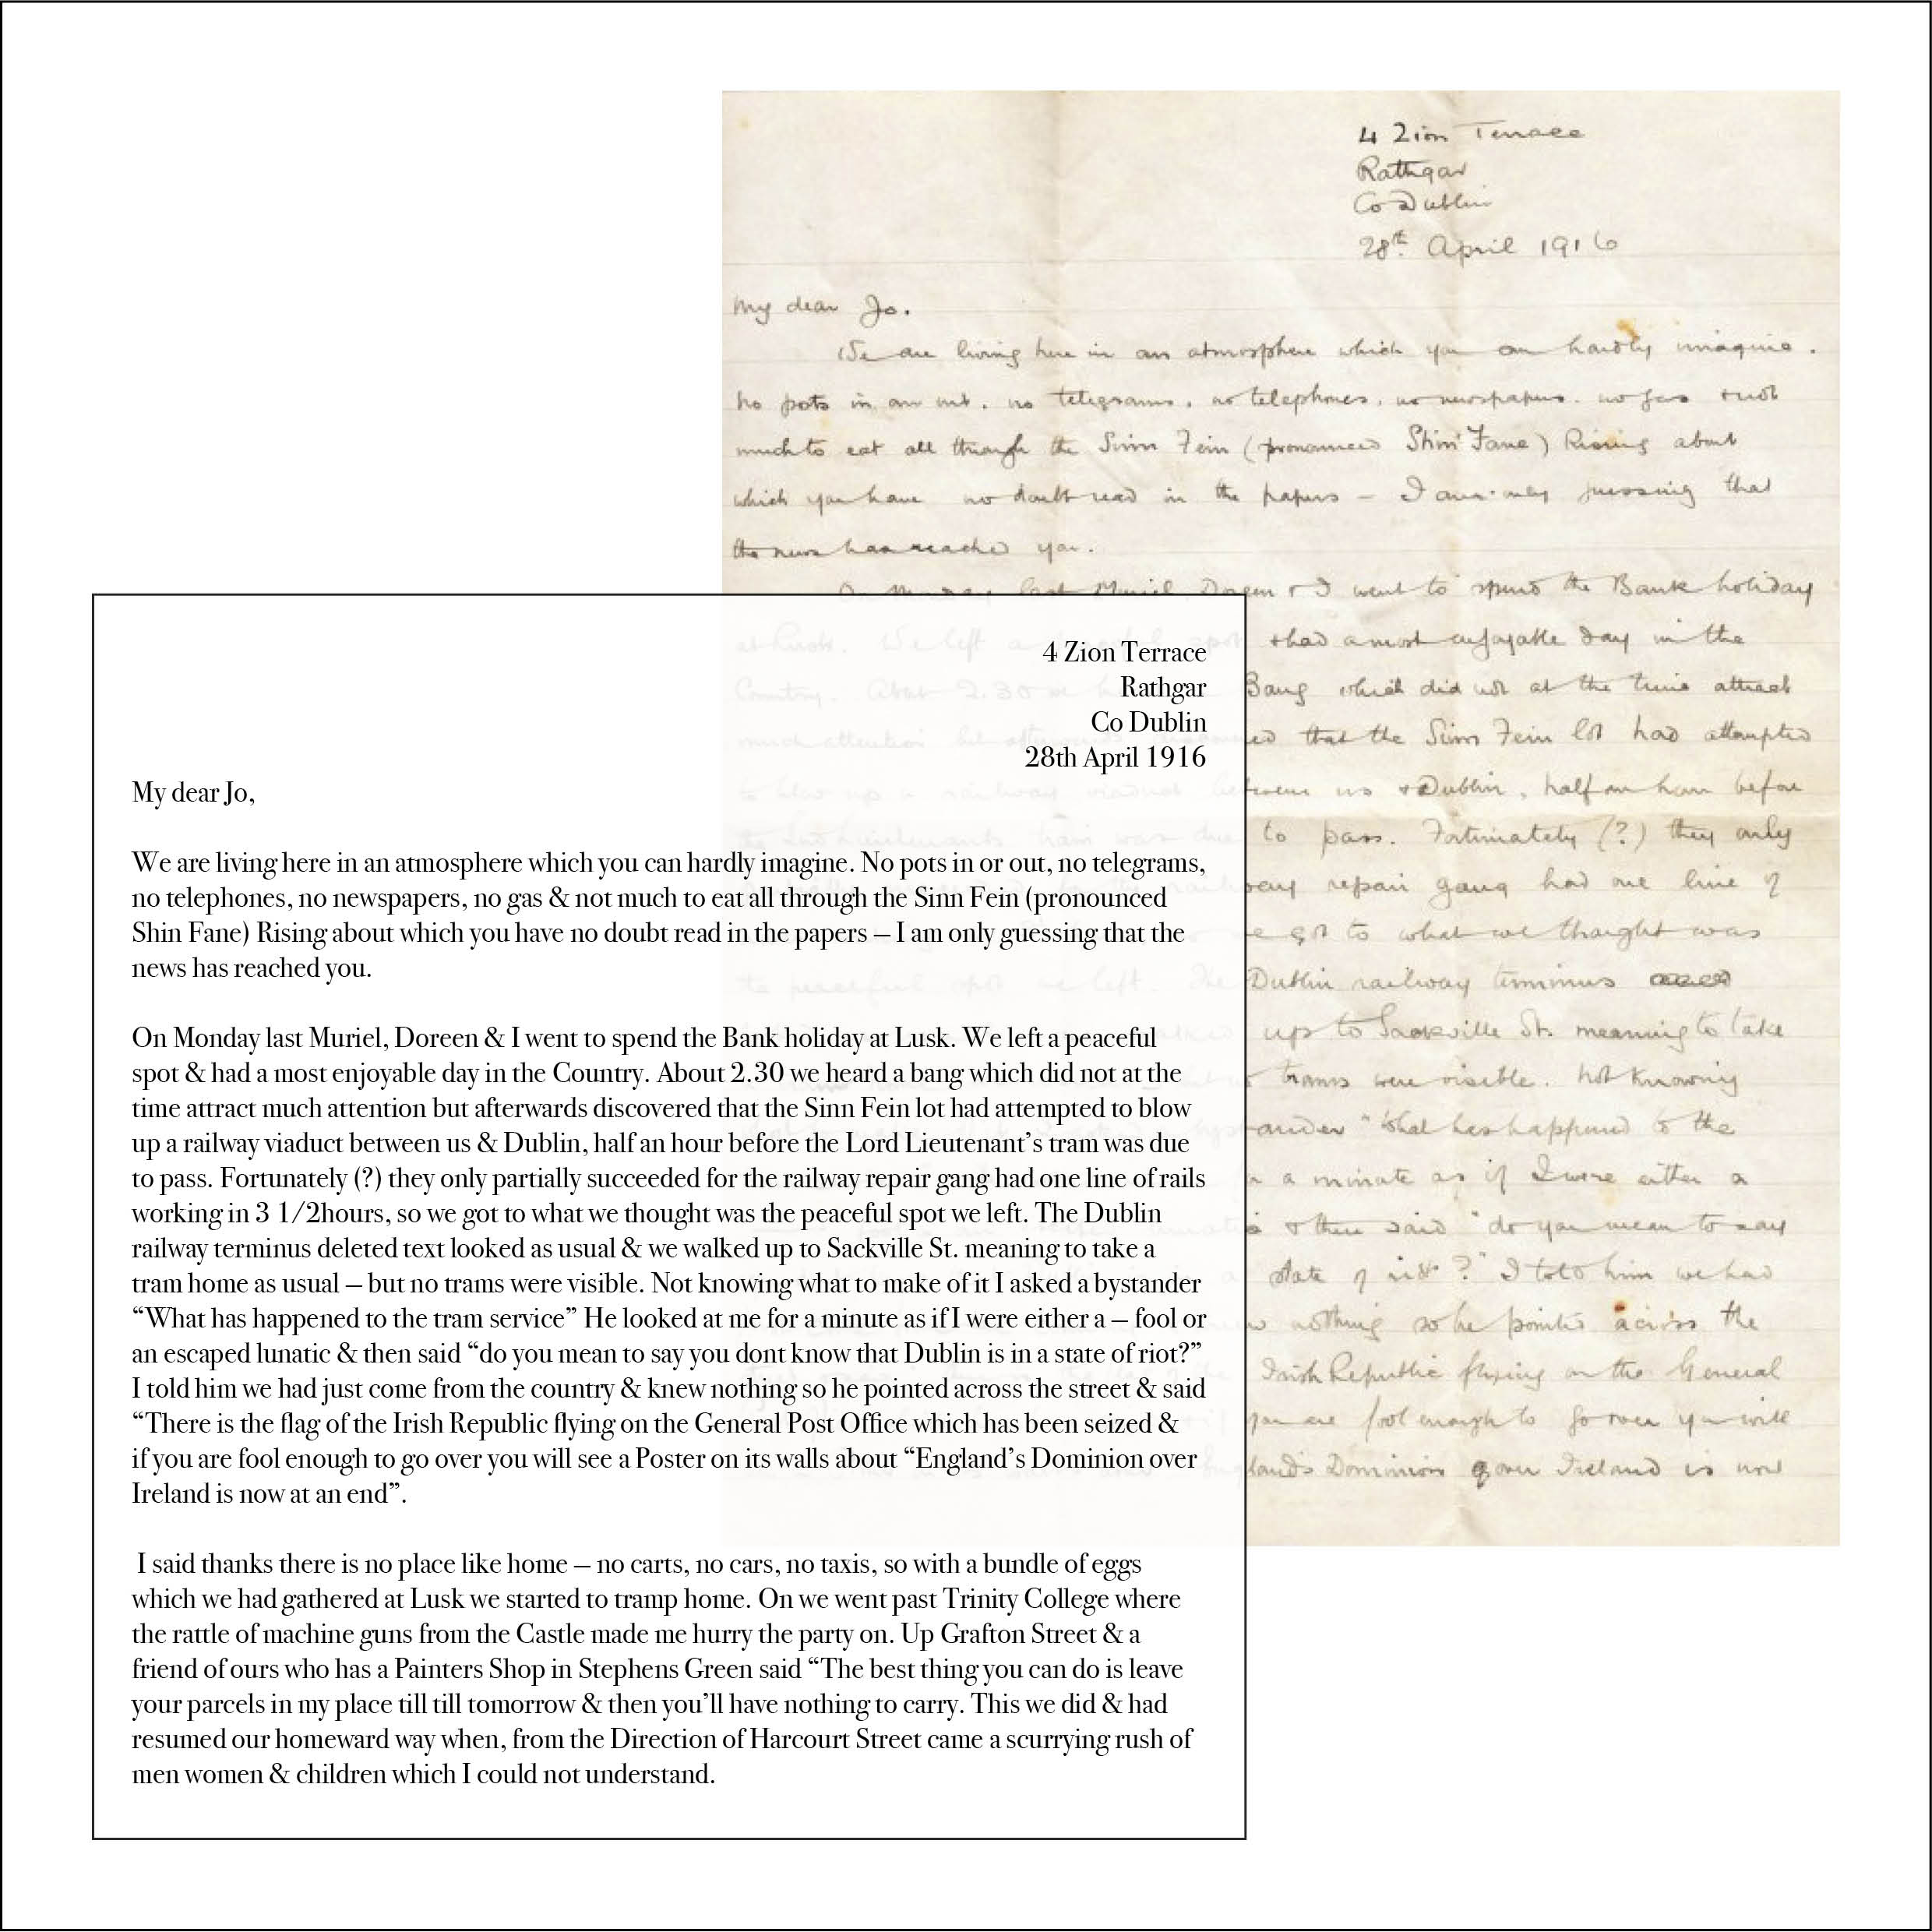 4 Zion Terrace
Rathgar
Co Dublin
28th April 1916
My dear Jo.
We are living here in an atmosphere which you can hardly imagine.
No pots in or out. no telegrams. no telephones. no newspapers. no gas & not
much to eat all through the Sinn Fein (pronounced Shin Fane) Rising about
which you have no doubt read in the papers – I am only guessing that
the news has reached you.
On Monday last Muriel, Doreen & I went to spend the Bank holiday
& had a most enjoyable day in the
Bang which did not at the time attract
that the Sinn Fein lot had attempted
between us & Dublin, half an hour before
to pass. Fortunately (?) they only
repair gang had one line of
got to what we thought was
Dublin railway terminus
up to Sackville St. meaning to take
trams were visible. Not knowing
"What has happened to the
a minute as if I were either a
& then said "do you mean to say
state of riot?" I told him we had
nothing so he pointed across the
Irish Republic flying on the General
you are fool enough to go over you will
England's Dominion over Ireland is now
4 Zion Terrace
Rathgar
Co Dublin
28th April 1916
My dear Jo,
We are living here in an atmosphere which you can hardly imagine. No pots in or out, no telegrams,
no telephones, no newspapers, no gas & not much to eat all through the Sinn Fein (pronounced
Shin Fane) Rising about which you have no doubt read in the papers – I am only guessing that the
news has reached you.
On Monday last Muriel, Doreen & I went to spend the Bank holiday at Lusk. We left a peaceful
spot & had a most enjoyable day in the Country. About 2.30 we heard a bang which did not at the
time attract much attention but afterwards discovered that the Sinn Fein lot had attempted to blow
up a railway viaduct between us & Dublin, half an hour before the Lord Lieutenant’s tram was due
to pass. Fortunately (?) they only partially succeeded for the railway repair gang had one line of rails
working in 3 1/2hours, so we got to what we thought was the peaceful spot we left. The Dublin
railway terminus deleted text looked as usual & we walked up to Sackville St. meaning to take a
tram home as usual – but no trams were visible. Not knowing what to make of it I asked a bystander
“What has happened to the tram service” He looked at me for a minute as if I were either a – fool or
an escaped lunatic & then said “do you mean to say you dont know that Dublin is in a state of riot?”
I told him we had just come from the country & knew nothing so he pointed across the street & said
“There is the flag of the Irish Republic flying on the General Post Office which has been seized &
if you are fool enough to go over you will see a Poster on its walls about “England’s Dominion over
Ireland is now at an end”.
I said thanks there is no place like home – no carts, no cars, no taxis, so with a bundle of eggs
which we had gathered at Lusk we started to tramp home. On we went past Trinity College where
the rattle of machine guns from the Castle made me hurry the party on. Up Grafton Street & a
friend of ours who has a Painters Shop in Stephens Green said “The best thing you can do is leave
your parcels in my place till till tomorrow & then you’ll have nothing to carry. This we did & had
resumed our homeward way when, from the Direction of Harcourt Street came a scurrying rush of
men women & children which I could not understand.